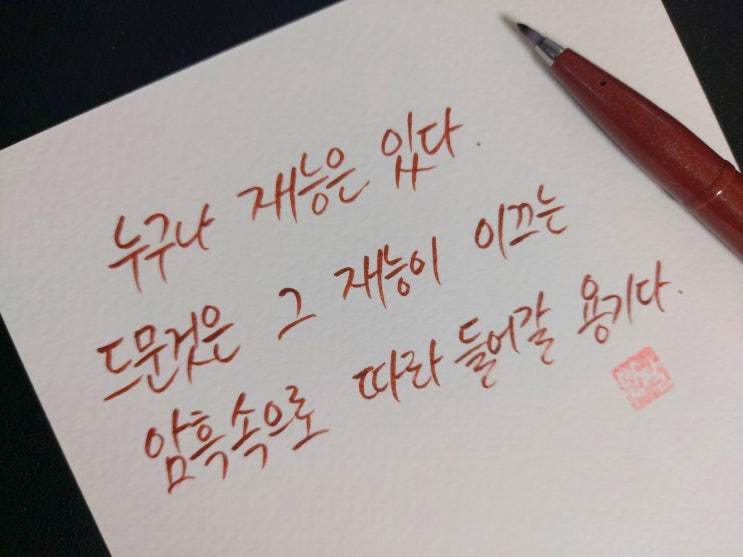 누구나 재능은 있다.
드문것은 그 재능이 이끄는
암흑속으로 따라 들어갈 용기다.